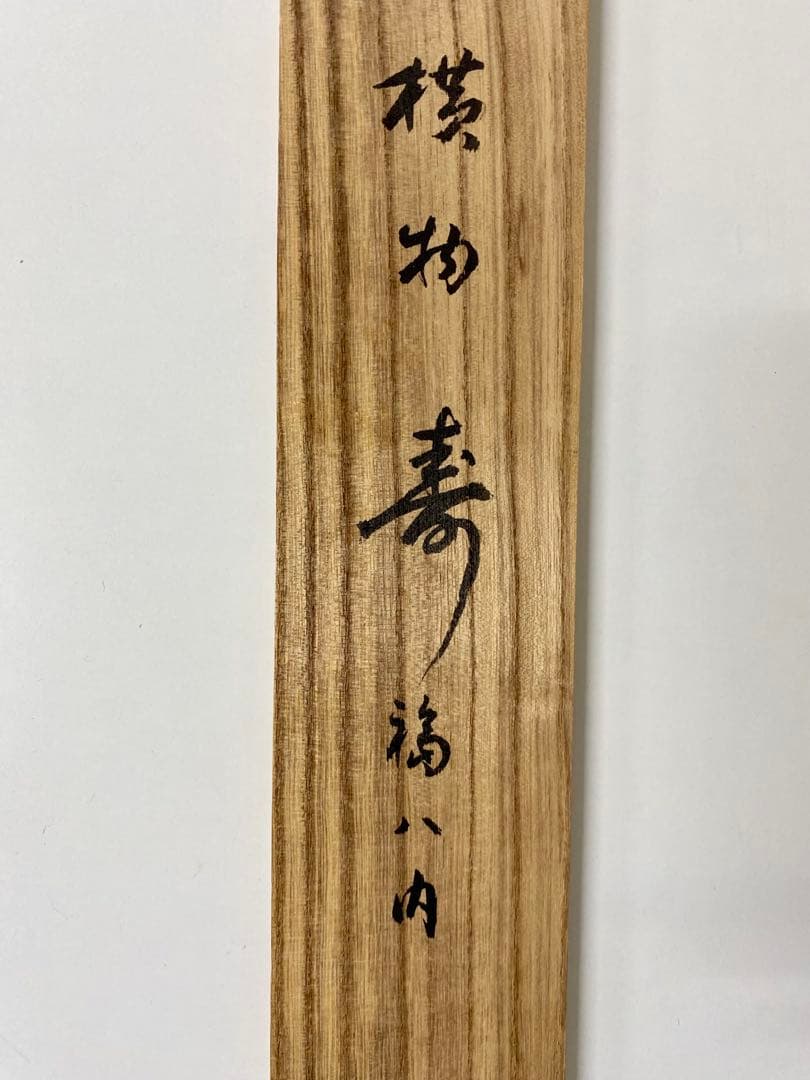 横物 寿 福八内